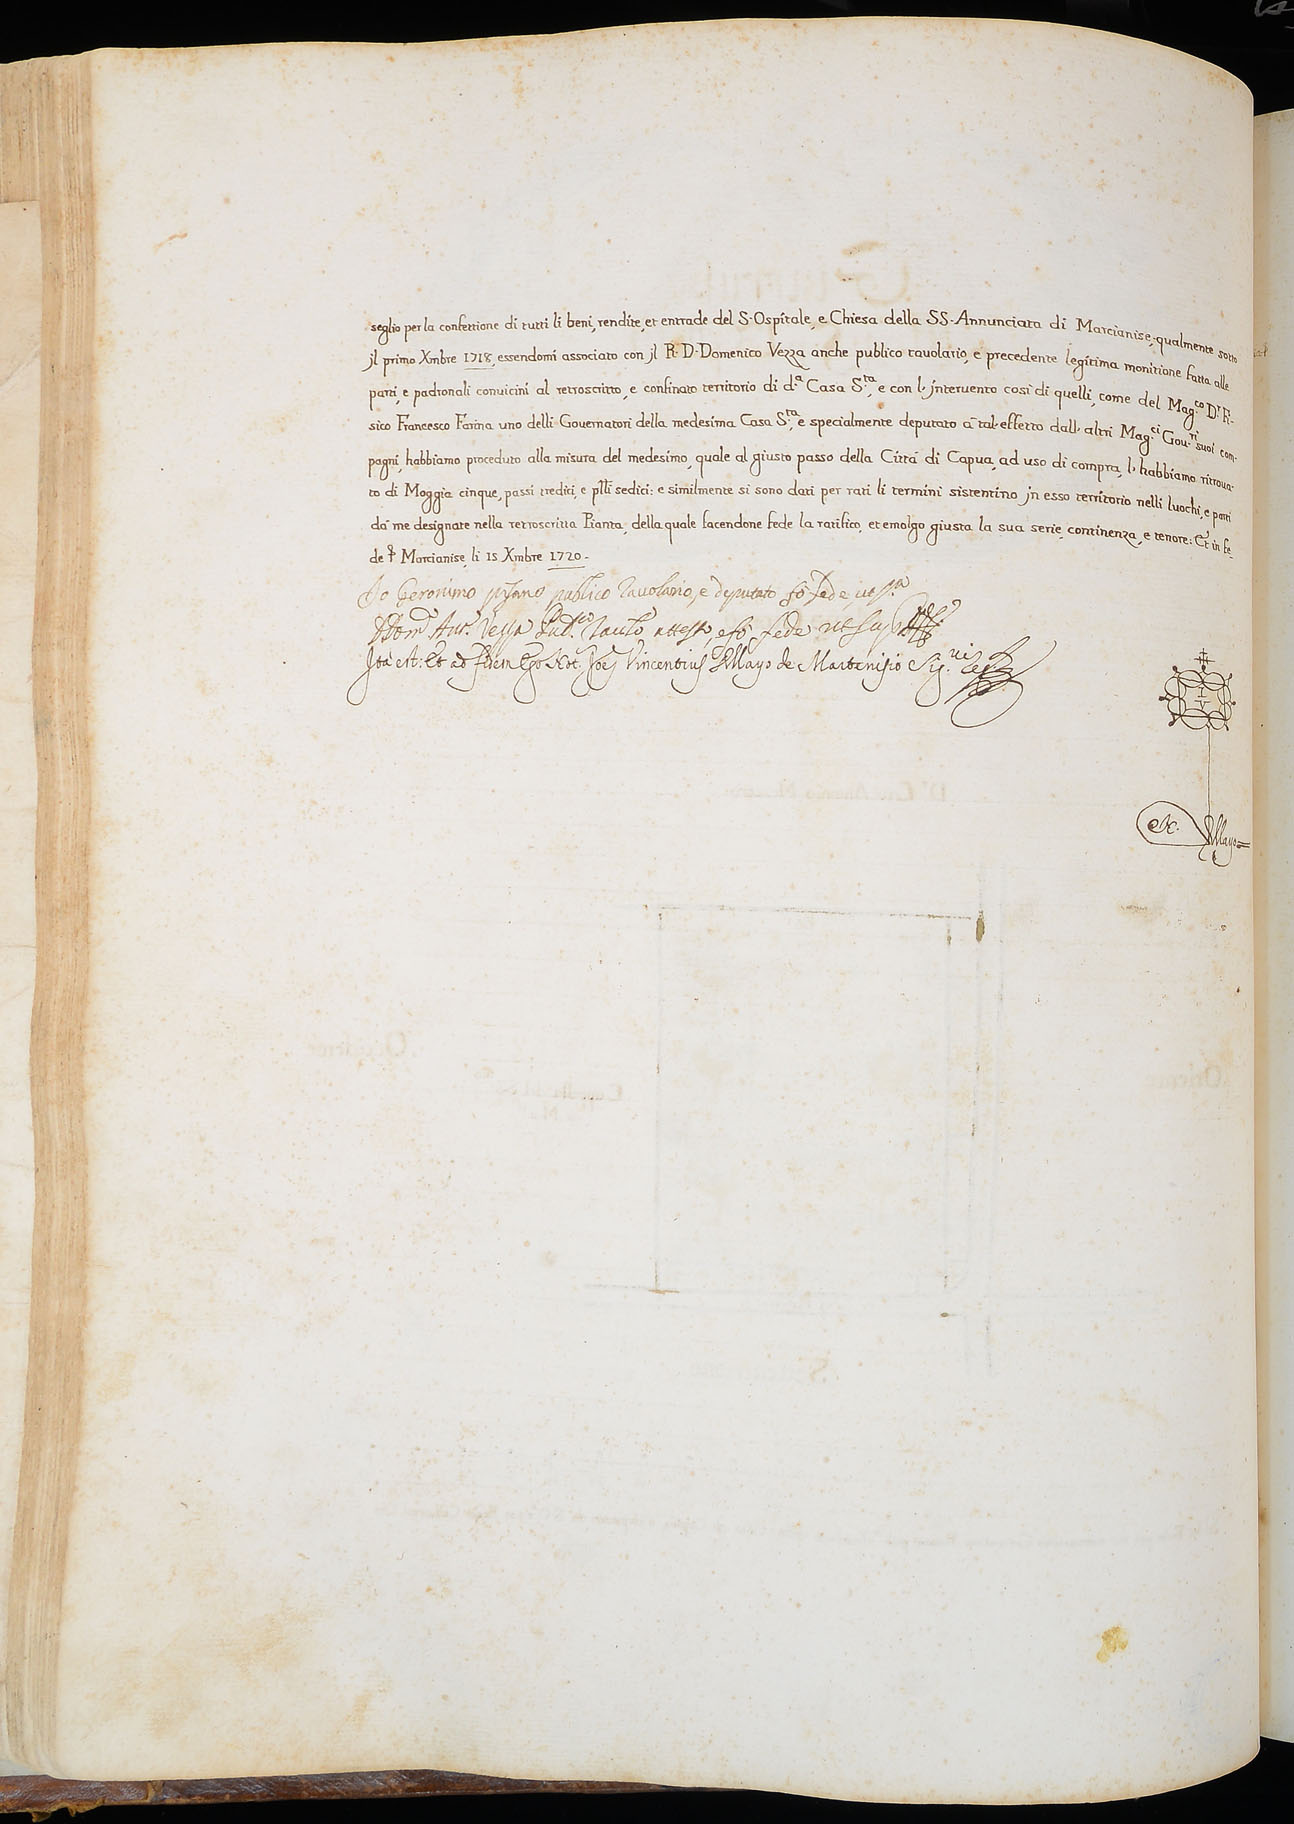 seglio per la confettione di tutti li beni, rendite, et entrade del S. Ospitale, e Chiesa della SS. Annunciata di Marcianise, qualmente sotto
jl primo Xmbre 1718, essendomi associato con jl R. D. Domenico Vezza anche publico tavolario, e precedente legitima monitione fatta alle
parti, e padronali convicini al retroscritto, e confinato territorio di d.ª Casa S.ta, e con l' jntervento così di quelli, come del Mag.co D.r Fi-
sico Francesco Farina uno delli Governatori della medesima Casa S.ta, e specialmente deputato a tal' effetto dall' altri Mag.ci Gov.ri suoi com-
pagni, habbiamo proceduto alla misura del medesimo, quale al giusto passo della Città di Capua, ad uso di compra, l' habbiamo ritrova-
to di Moggia cinque, passi tredici, e p̄lli sedici: e similmente si sono dati per rati li termini sistentino jn esso territorio nelli luochi, e parti
da me designate nella retroscritta Pianta, della quale facendone fede la ratifico, et emolgo giusta la sua serie, continenza, e tenore: Et in fe-
de &c. Marcianise, li 15 Xmbre 1720 -
Io Geronimo pisano publico tavolario, e deputato fo fede, ut s.ª
D. Dom.co Ant.o Vezza Pub.co Tavol.o attesto, e fo fede ut sup.ª
Ita est: Et ad fidem Ego Not. Joēs Vincentius de Mayo de Martenisio Sig.vi
de Mayo